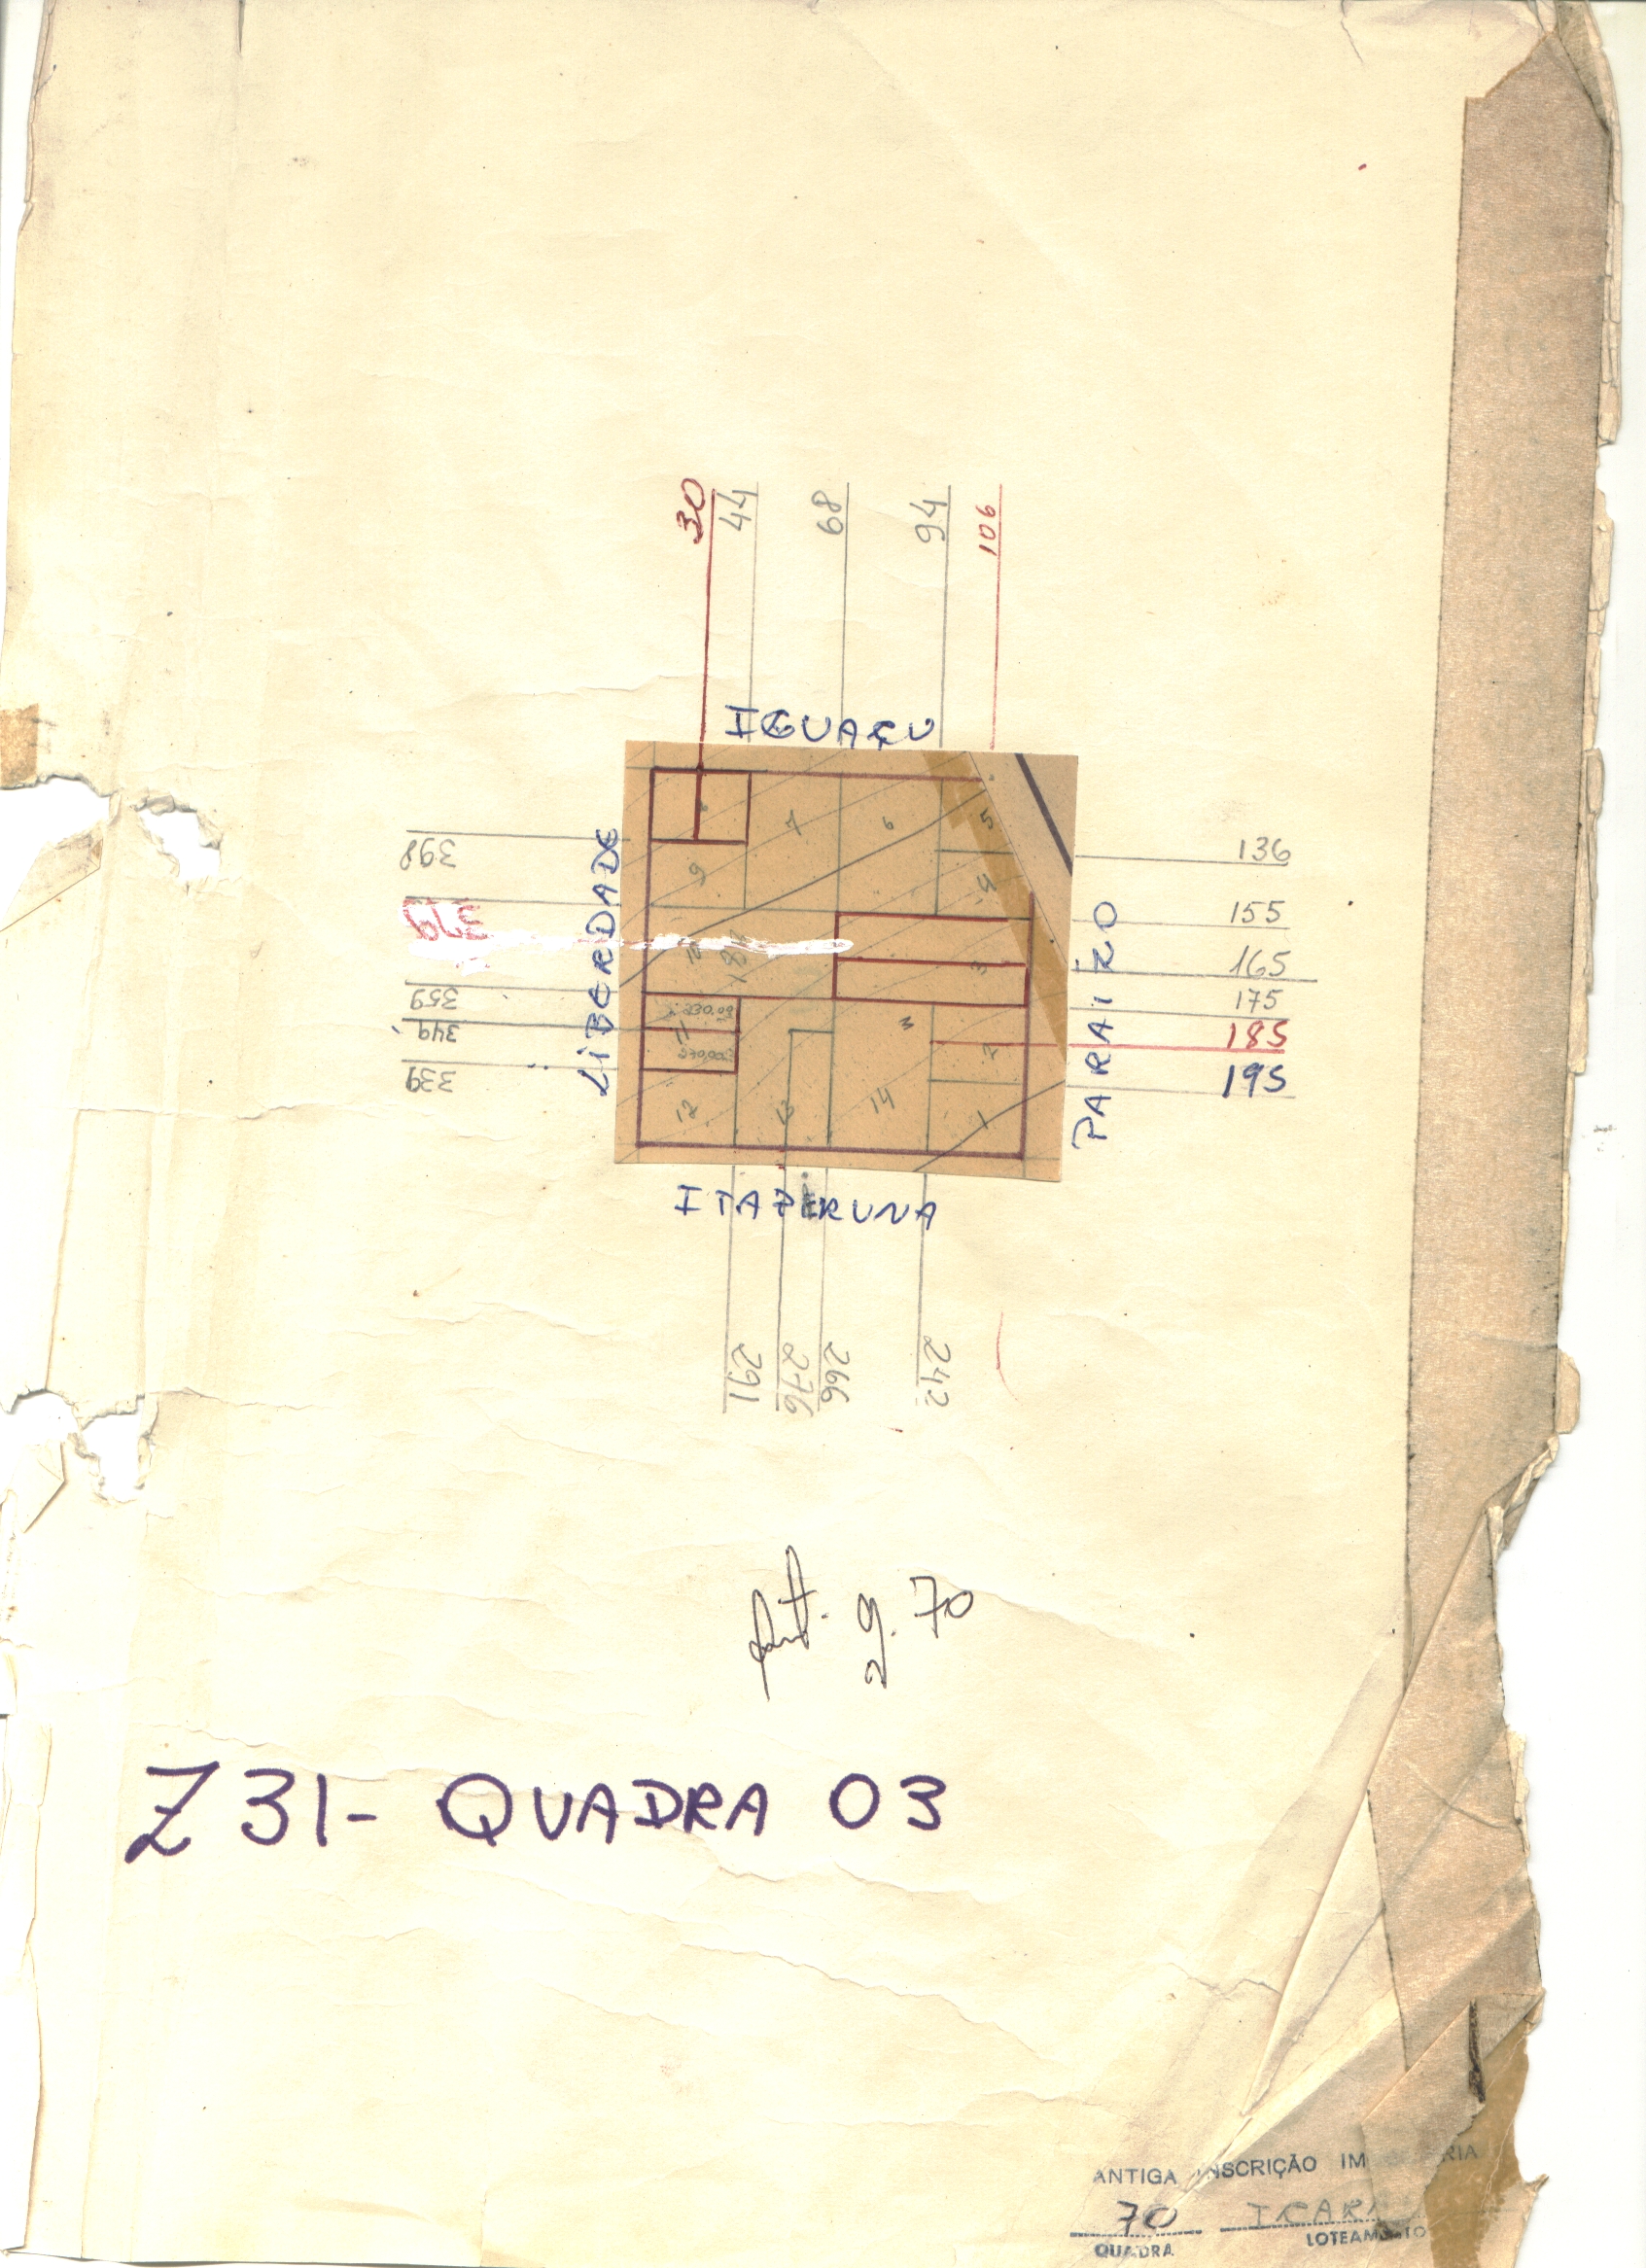 30
44
68
94
106
IGUAÇU
398
359
349
339
LIBERDADE
7
6
5
9
4
10
3
11
3
2
12
13
14
1
136
155
165
175
185
195
ITAPERUNA
291
276
266
242
70
Z 31 - QUADRA 03
ANTIGA INSCRIÇÃO
70
QUADRA
LOTEAMENTO